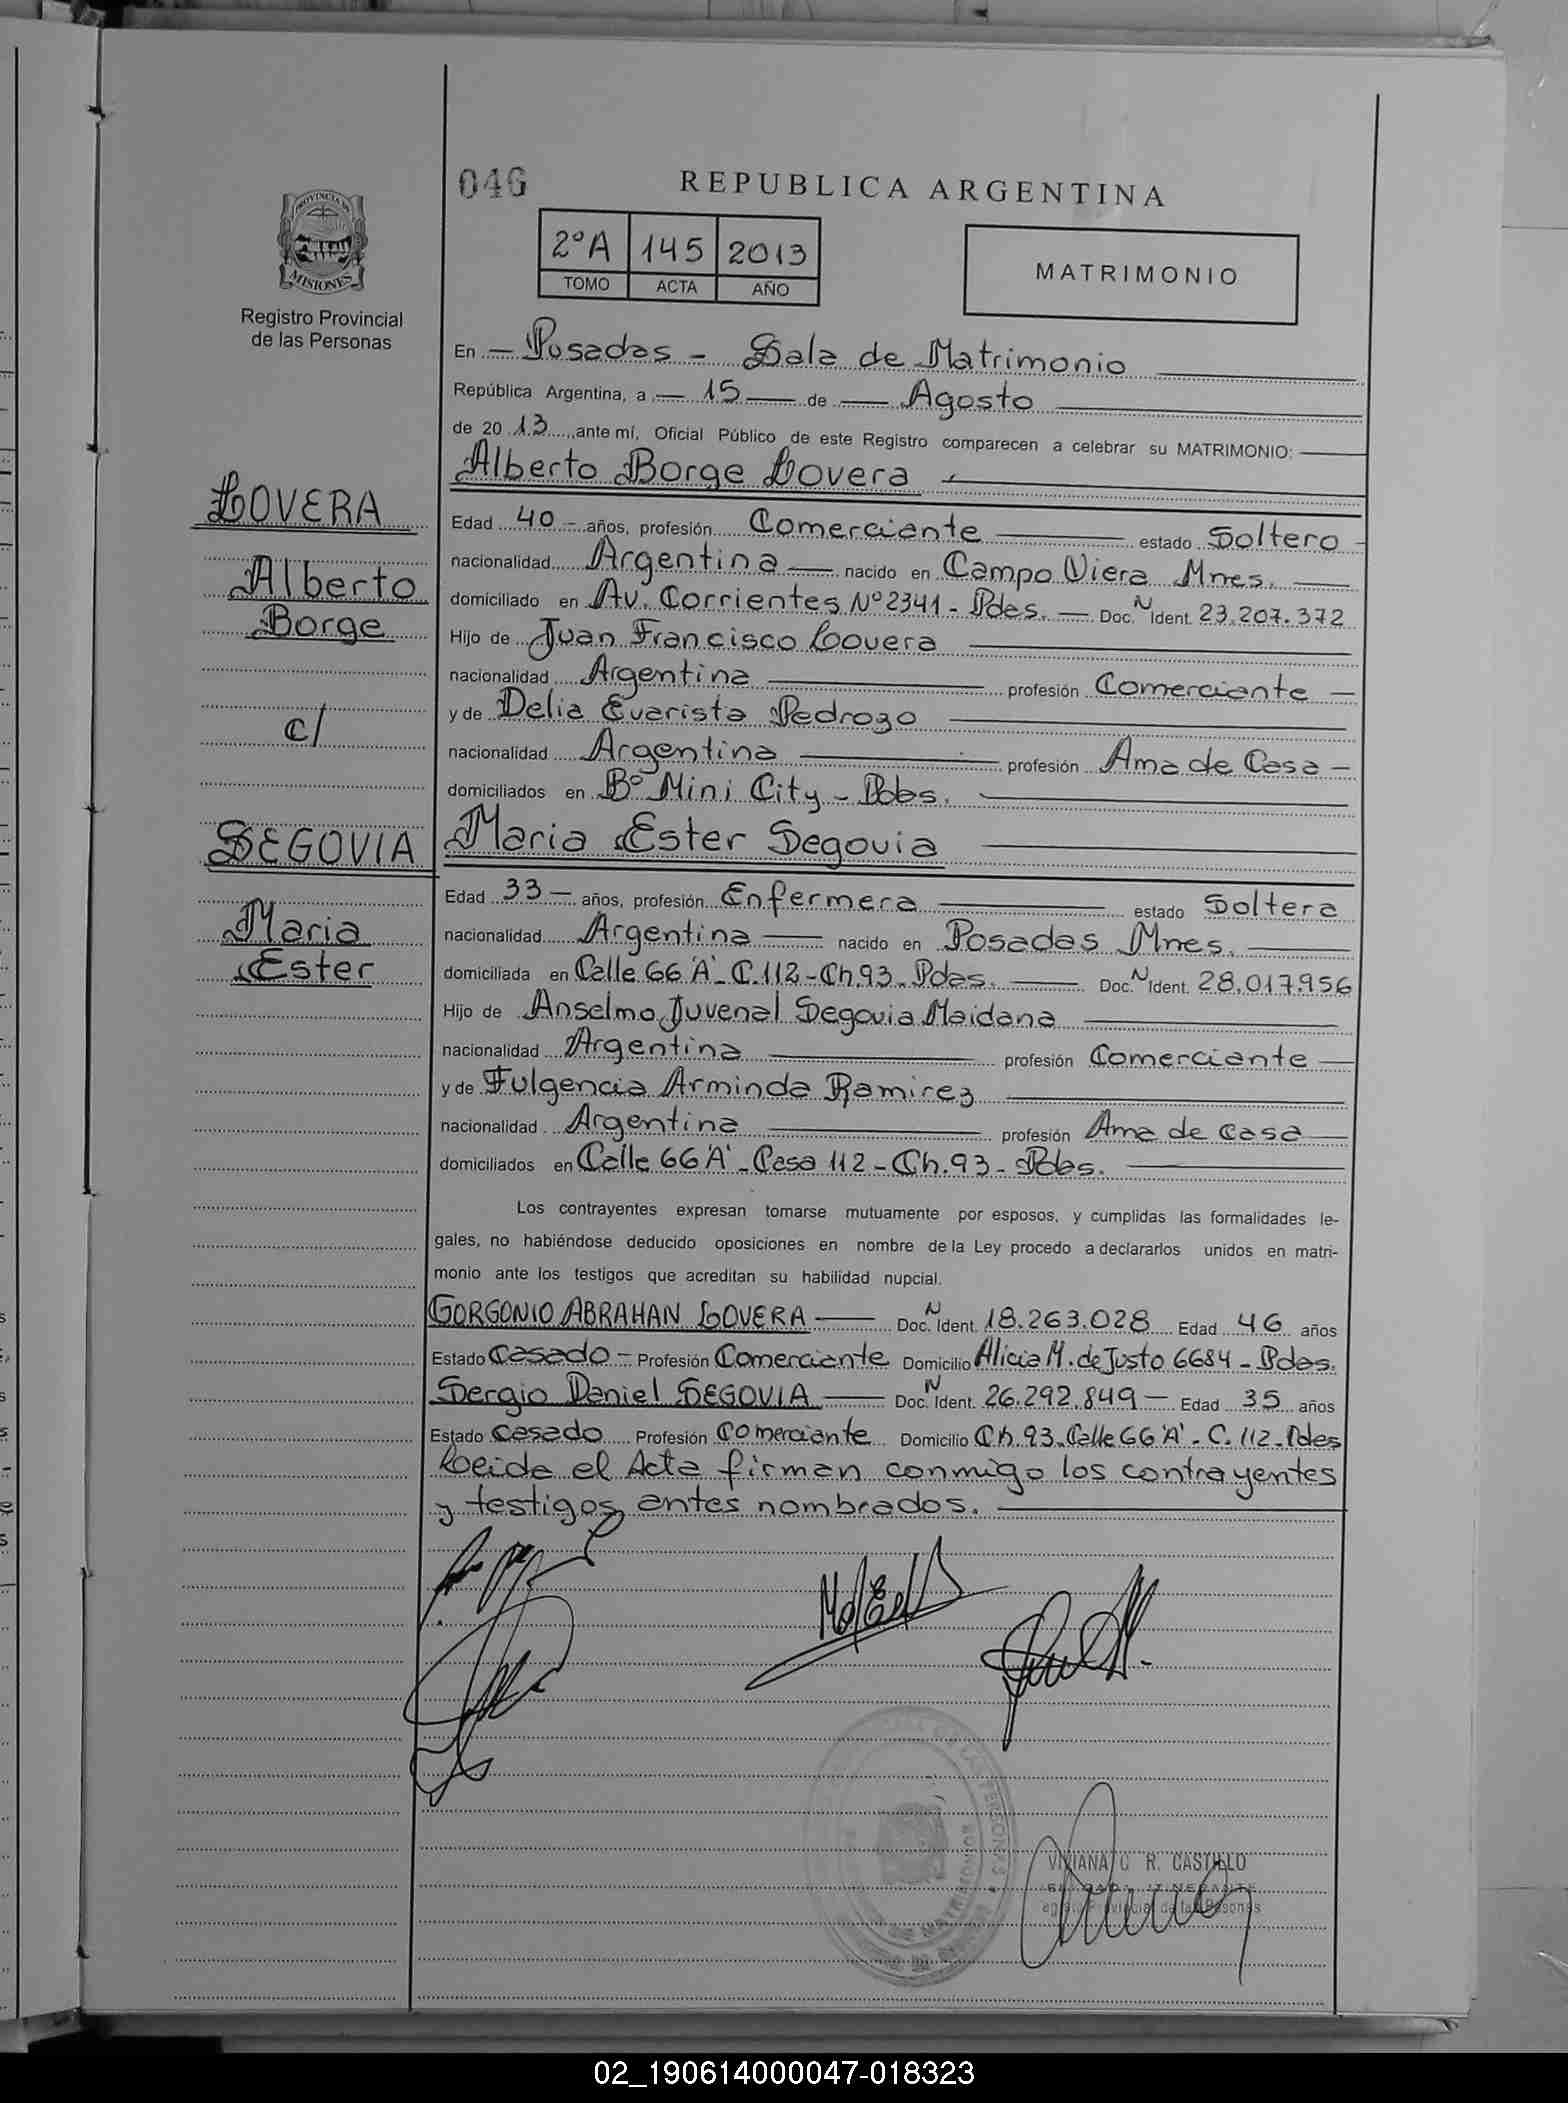 046
REPUBLICA ARGENTINA
PROVINCIA DE
MISIONES
Registro Provincial
de las Personas
2ºA 145 2013
TOMO ACTA AÑO
MATRIMONIO
En — Posadas - Sala de Matrimonio
República Argentina, a — 15 — de — Agosto
de 20 13 ante mí, Oficial Público de este Registro comparecen a celebrar su MATRIMONIO:
Alberto Borge Lovera
LOVERA
Alberto
Borge
c/
SEGOVIA
Maria
Ester
Edad 40 - años, profesión Comerciante estado Soltero -
nacionalidad Argentina — nacido en Campo Viera Mnes. —
domiciliado en Av. Corrientes Nº 2341 - Pdas. — Doc. N Ident. 23.207.372
Hijo de Juan Francisco Lovera
nacionalidad Argentina profesión Comerciante —
y de Delia Evarista Pedrozo
nacionalidad Argentina profesión Ama de Casa —
domiciliados en Bº Mini City - Pdas.
Maria Ester Segovia
Edad 33 — años, profesión Enfermera estado Soltera
nacionalidad Argentina — nacido en Posadas Mnes.
domiciliada en Calle 66 'A' - C. 112 - Ch. 93 - Pdas. — Doc. N Ident. 28.017.956
Hijo de Anselmo Juvenal Segovia Maidana
nacionalidad Argentina profesión Comerciante —
y de Fulgencia Arminda Ramirez
nacionalidad Argentina profesión Ama de casa —
domiciliados en Calle 66 'A' - Casa 112 - Ch. 93 - Pdas.
Los contrayentes expresan tomarse mutuamente por esposos, y cumplidas las formalidades le-
gales, no habiéndose deducido oposiciones en nombre de la Ley procedo a declararlos unidos en matri-
monio ante los testigos que acreditan su habilidad nupcial.
GORGONIO ABRAHAN LOVERA — Doc. N Ident. 18.263.028 Edad 46 años
Estado Casado - Profesión Comerciante Domicilio Alicia M. de Justo 6684 - Pdas.
Sergio Daniel SEGOVIA — Doc. N Ident. 26.292.849 — Edad 35 años
Estado Casado Profesión Comerciante Domicilio Ch. 93 - Calle 66 'A' - C. 112 - Pdas
Leida el Acta firman conmigo los contrayentes
y testigos antes nombrados.
VIVIANA C R. CASTILLO
02_190614000047-018323